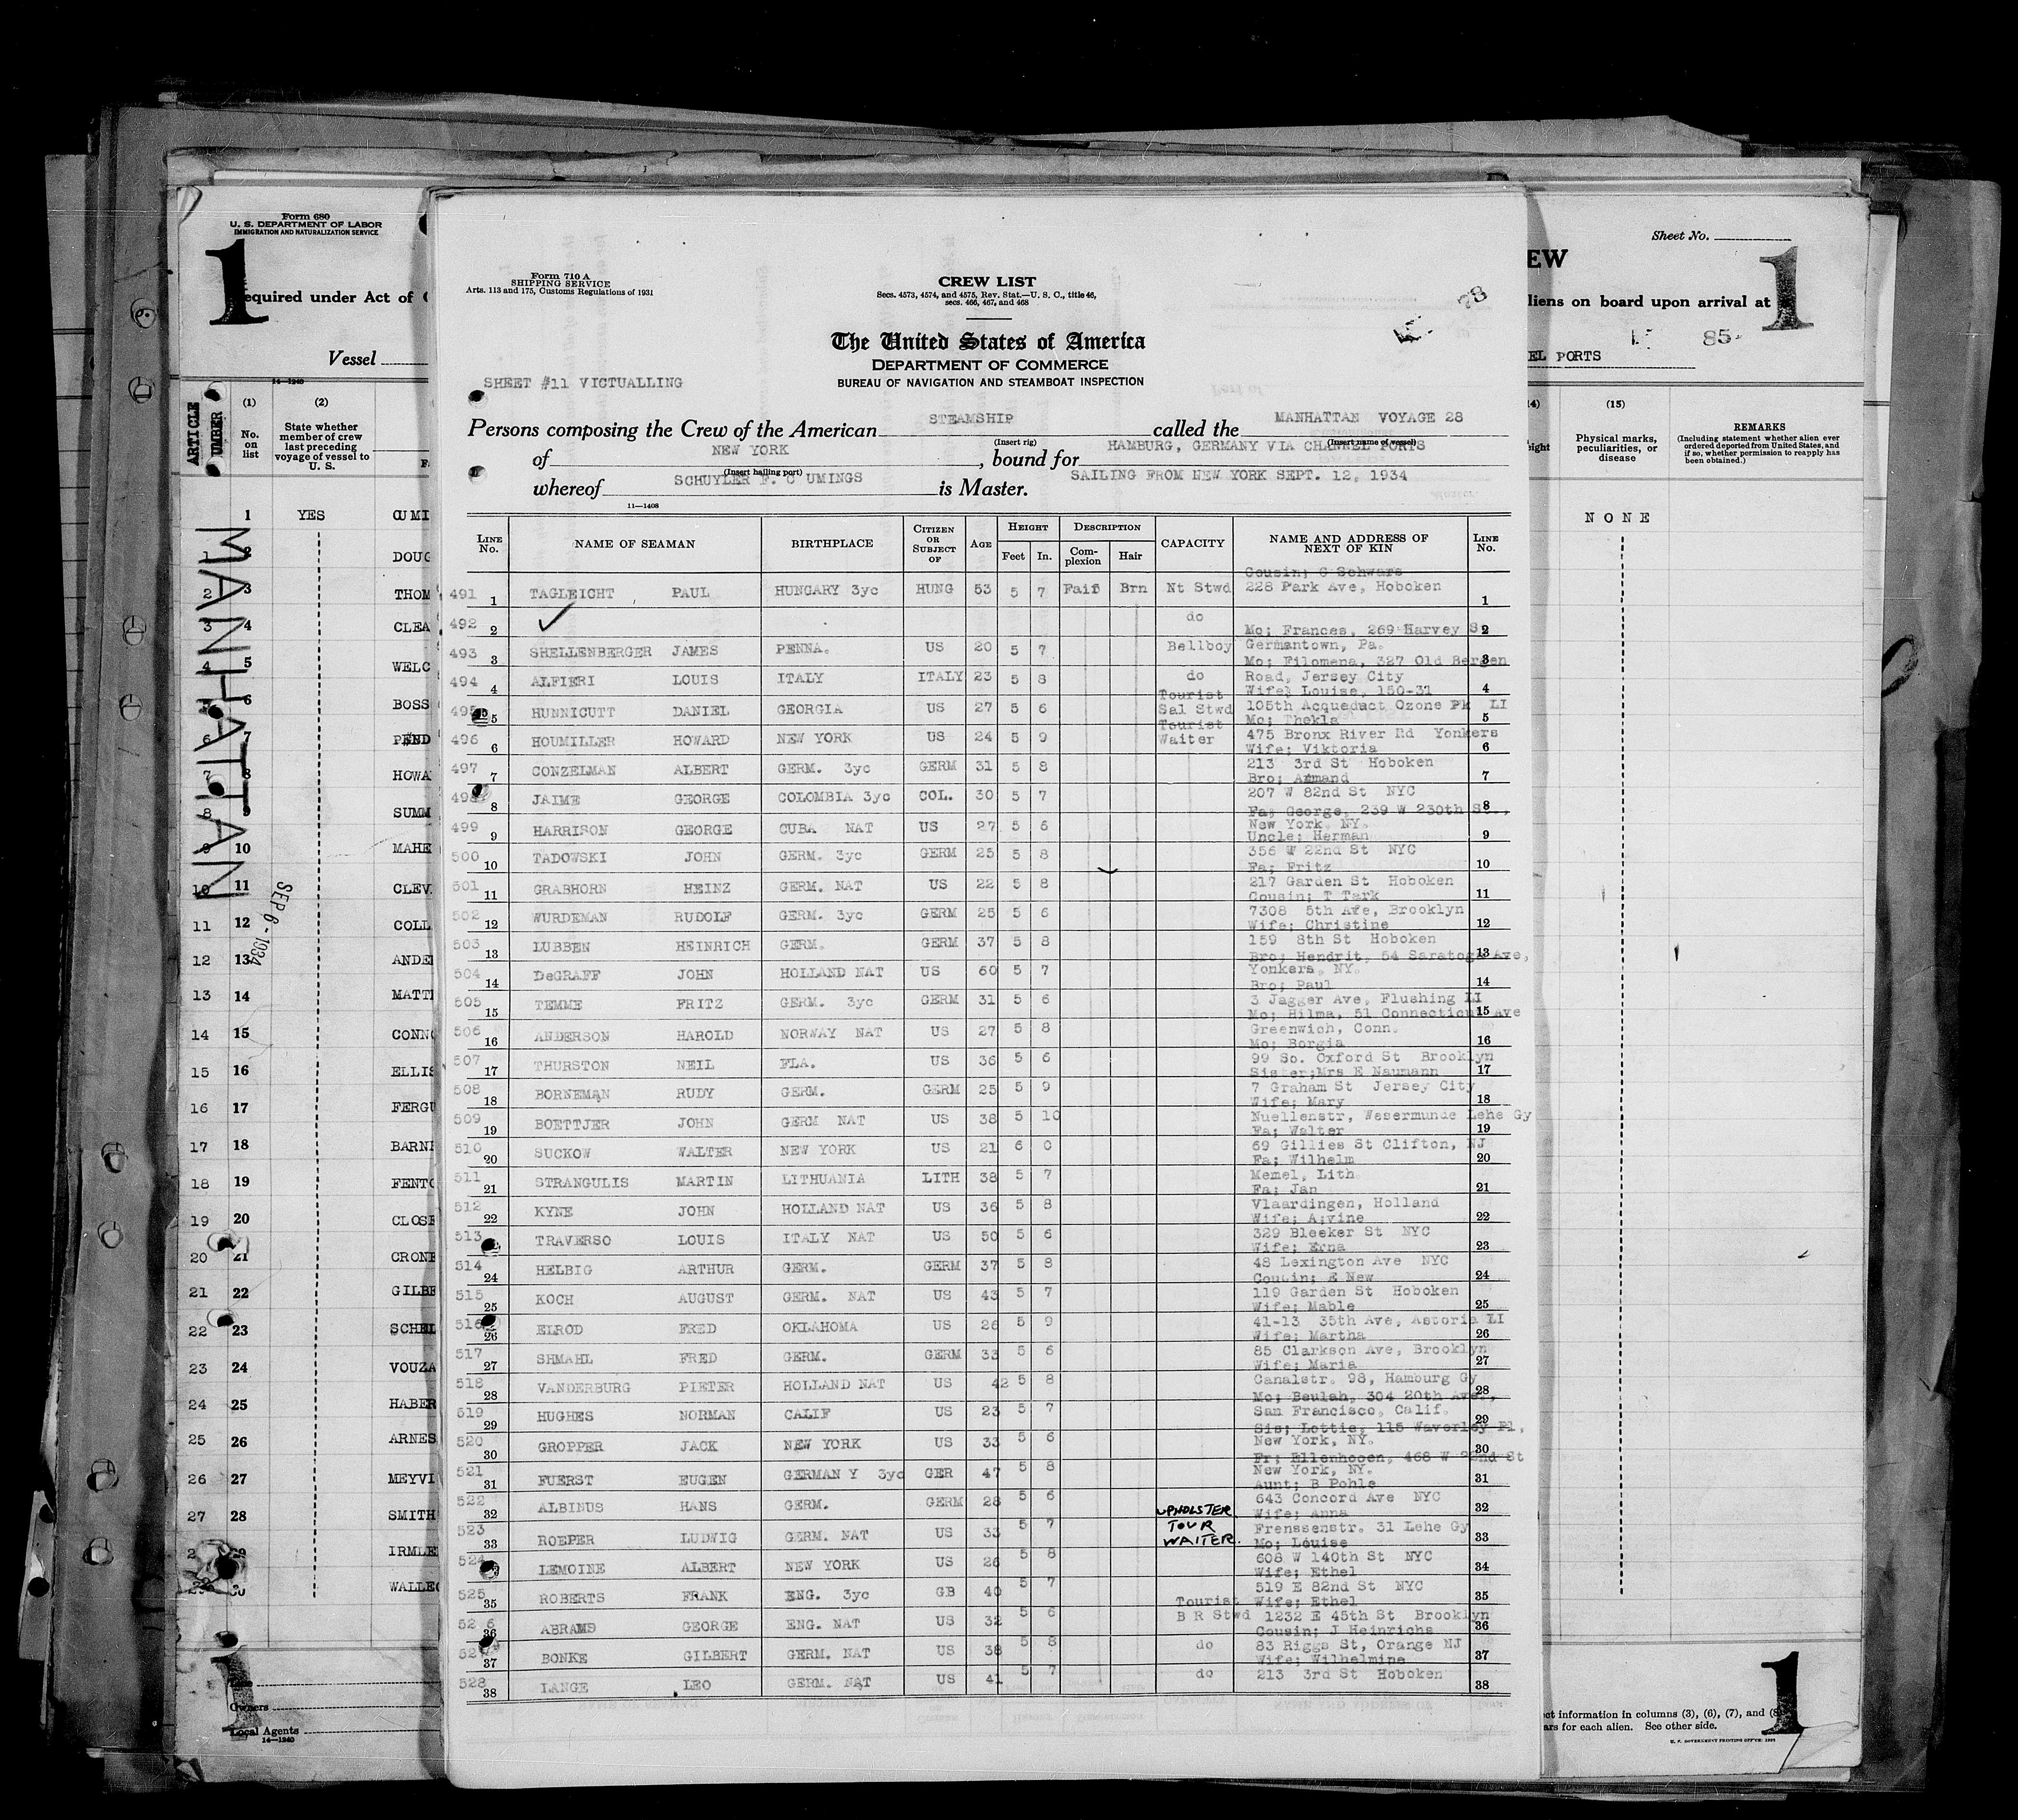 Form 680
U. S. DEPARTMENT OF LABOR
IMMIGRATION AND NATURALIZATION SERVICE
1
equired under Act of
Vessel
14—1240
ARTICLE NUMBER
(1) No. on list
(2) State whether member of crew last preceding voyage of vessel to U. S.
MANHATTAN
SEP 6 - 1934
1 YES CUMI
2 DOUG
2 3 THOM
3 4 CLEA
4 5 WELC
6 BOSS
6 7 PEND
7 8 HOWA
8 SUMM
9 10 MAHE
10 11 CLEV
11 12 COLL
12 13 ANDE
13 14 MATT
14 15 CONN
15 16 ELLIS
16 17 FERGU
17 18 BARN
18 19 FENTO
19 20 CLOSE
20 21 CRONE
21 22 GILBE
22 23 SCHEL
23 24 VOUZA
24 25 HABER
25 26 ARNES
26 27 MEYVI
27 28 SMITH
29 IRMLE
30 WALLE
Owners
Local Agents
14—1240
Form 710 A
SHIPPING SERVICE
Arts. 113 and 175, Customs Regulations of 1931
CREW LIST
Secs. 4573, 4574, and 4575, Rev. Stat.—U. S. C., title 46,
secs. 466, 467, and 468
78
The United States of America
DEPARTMENT OF COMMERCE
BUREAU OF NAVIGATION AND STEAMBOAT INSPECTION
SHEET #11 VICTUALLING
Persons composing the Crew of the American STEAMSHIP called the MANHATTAN VOYAGE 28
(Insert rig) (Insert name of vessel)
of NEW YORK, bound for HAMBURG, GERMANY VIA CHANNEL PORTS
(Insert hailing port)
whereof SCHUYLER F. C UMINGS is Master. SAILING FROM NEW YORK SEPT. 12, 1934
11—1408
LINE No. NAME OF SEAMAN BIRTHPLACE CITIZEN OR SUBJECT OF AGE HEIGHT Feet In. DESCRIPTION Complexion Hair CAPACITY NAME AND ADDRESS OF NEXT OF KIN LINE No.
Cousin; C Schwars
491 1 TAGLEICHT PAUL HUNGARY 3yc HUNG 53 5 7 Fair Brn Nt Stwd 228 Park Ave, Hoboken 1
492 2 do 2
Mo; Frances, 269 Harvey S
493 3 SHELLENBERGER JAMES PENNA. US 20 5 7 Bellboy Germantown, Pa. 3
Mo; Filomena, 327 Old Bergen
494 4 ALFIERI LOUIS ITALY ITALY 23 5 8 do Road, Jersey City 4
Tourist Wife; Louise, 150-31
495 5 HUNNICUTT DANIEL GEORGIA US 27 5 6 Sal Stwd 105th Acqueduct Ozone Pk LI 5
Tourist Mo; Thekla
496 6 HOUMILLER HOWARD NEW YORK US 24 5 9 Waiter 475 Bronx River Rd Yonkers 6
Wife; Viktoria
497 7 CONZELMAN ALBERT GERM. 3yc GERM 31 5 8 213 3rd St Hoboken 7
Bro; Armand
498 8 JAIME GEORGE COLOMBIA 3yc COL. 30 5 7 207 W 82nd St NYC 8
Fa; George, 239 W 230th St.,
499 9 HARRISON GEORGE CUBA NAT US 27 5 6 New York NY. 9
Uncle; Herman
500 10 TADOWSKI JOHN GERM. 3yc GERM 25 5 8 356 W 22nd St NYC 10
Fa; Fritz
501 11 GRABHORN HEINZ GERM. NAT US 22 5 8 217 Garden St Hoboken 11
Cousin; T Tark
502 12 WURDEMAN RUDOLF GERM. 3yc GERM 25 5 6 7308 5th Ave, Brooklyn 12
Wife; Christine
503 13 LUBBEN HEINRICH GERM. GERM 37 5 8 159 8th St Hoboken 13
Bro; Hendrit, 54 Saratoga Ave,
504 14 DeGRAFF JOHN HOLLAND NAT US 60 5 7 Yonkers, NY. 14
Bro; Paul
505 15 TEMME FRITZ GERM. 3yc GERM 31 5 6 3 Jagger Ave, Flushing LI 15
Mo; Hilma, 51 Connecticut Ave
506 16 ANDERSON HAROLD NORWAY NAT US 27 5 8 Greenwich, Conn. 16
Mo; Borgia
507 17 THURSTON NEIL FLA. US 36 5 6 99 So. Oxford St Brooklyn 17
Sister;Mrs E Naumann
508 18 BORNEMAN RUDY GERM. GERM 25 5 9 7 Graham St Jersey City 18
Wife; Mary
509 19 BOETTJER JOHN GERM NAT US 38 5 10 Nuellenstr, Wesermunde Lehe Gy 19
Fa; Walter
510 20 SUCKOW WALTER NEW YORK US 21 6 0 69 Gillies St Clifton, NJ 20
Fa; Wilhelm
511 21 STRANGULIS MARTIN LITHUANIA LITH 38 5 7 Memel, Lith 21
Fa; Jan
512 22 KYNE JOHN HOLLAND NAT US 36 5 8 Vlaardingen, Holland 22
Wife; A;vine
513 TRAVERSO LOUIS ITALY NAT US 50 5 6 329 Bleeker St NYC 23
Wife; Erna
514 24 HELBIG ARTHUR GERM. GERM 37 5 8 48 Lexington Ave NYC 24
Cousin; E New
515 25 KOCH AUGUST GERM. NAT US 43 5 7 119 Garden St Hoboken 25
Wife; Mable
516 26 ELROD FRED OKLAHOMA US 26 5 9 41-13 35th Ave, Astoria LI 26
Wife; Martha
517 27 SHMAHL FRED GERM. GERM 33 5 6 85 Clarkson Ave, Brooklyn 27
Wife; Maria
518 28 VANDERBURG PIETER HOLLAND NAT US 42 5 8 Canalstr. 98, Hamburg Gy 28
Mo; Beulah, 304 20th Ave.,
519 29 HUGHES NORMAN CALIF US 23 5 7 San Francisco, Calif. 29
Sis; Lottie, 115 Waverley Pl,
520 30 GROPPER JACK NEW YORK US 33 5 6 New York, NY. 30
Fr; Ellenhooen, 468 W 22nd St
521 31 FUERST EUGEN GERMAN Y 3yc GER 47 5 8 New York, NY. 31
Aunt; B Pohle
522 32 ALBINUS HANS GERM. GERM 28 5 6 643 Concord Ave NYC 32
UPHOLSTER Wife; Anna
523 33 ROEPER LUDWIG GERM. NAT US 33 5 7 TOUR Frenssenstr. 31 Lehe Gy 33
WAITER. Mo; Louise
524 LEMOINE ALBERT NEW YORK US 26 5 8 608 W 140th St NYC 34
Wife; Ethel
525 35 ROBERTS FRANK ENG. 3yc GB 40 5 7 519 E 82nd St NYC 35
Tourist Wife; Ethel
526 36 ABRAMS GEORGE ENG. NAT US 32 5 6 B R Stwd 1232 E 45th St Brooklyn 36
Cousin; J Heinrichs
527 37 BONKE GILBERT GERM. NAT US 38 5 8 do 83 Riggs St, Orange NJ 37
Wife; Wilhelmine
528 38 LANGE LEO GERM. NAT US 41 5 7 do 213 3rd St Hoboken 38
Sheet No.
EW
1
liens on board upon arrival at
85
EL PORTS
4) eight
(15) Physical marks, peculiarities, or disease
REMARKS
(Including statement whether alien ever ordered deported from United States, and if so, whether permission to reapply has been obtained.)
NONE
1
ct information in columns (3), (6), (7), and (8)
ars for each alien. See other side.
U. S. GOVERNMENT PRINTING OFFICE: 1934